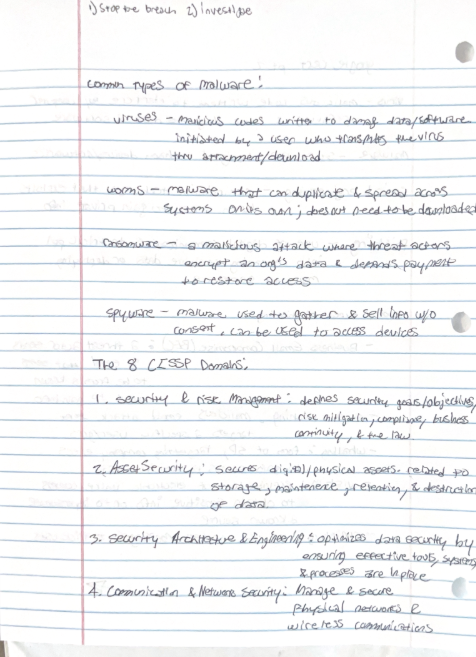 1) Stop the breach 2) investigate
Common Types of Malware:
viruses - malicious codes written to damage data/software
initiated by a user who transmits the virus
thru attachment/download
worms - malware that can duplicate & spread across
systems on its own; does not need to be downloaded
ransomware - a malicious attack where threat actors
encrypt an org's data & demands payment
to restore access
spyware - malware used to gather & sell info w/o
consent, can be used to access devices
The 8 CISSP Domains:
1. Security & risk Management: defines security goals/objectives,
risk mitigation, compliance, business
continuity, & the law
2. Asset Security: secures digital/physical assets. related to
storage, maintenence, retention, & destruction
of data
3. Security Architecture & Engineering: optimizes data security by
ensuring effective tools, systems,
& processes are in place
4. Communication & Network Security: Manage & secure
physical networks &
wireless communications